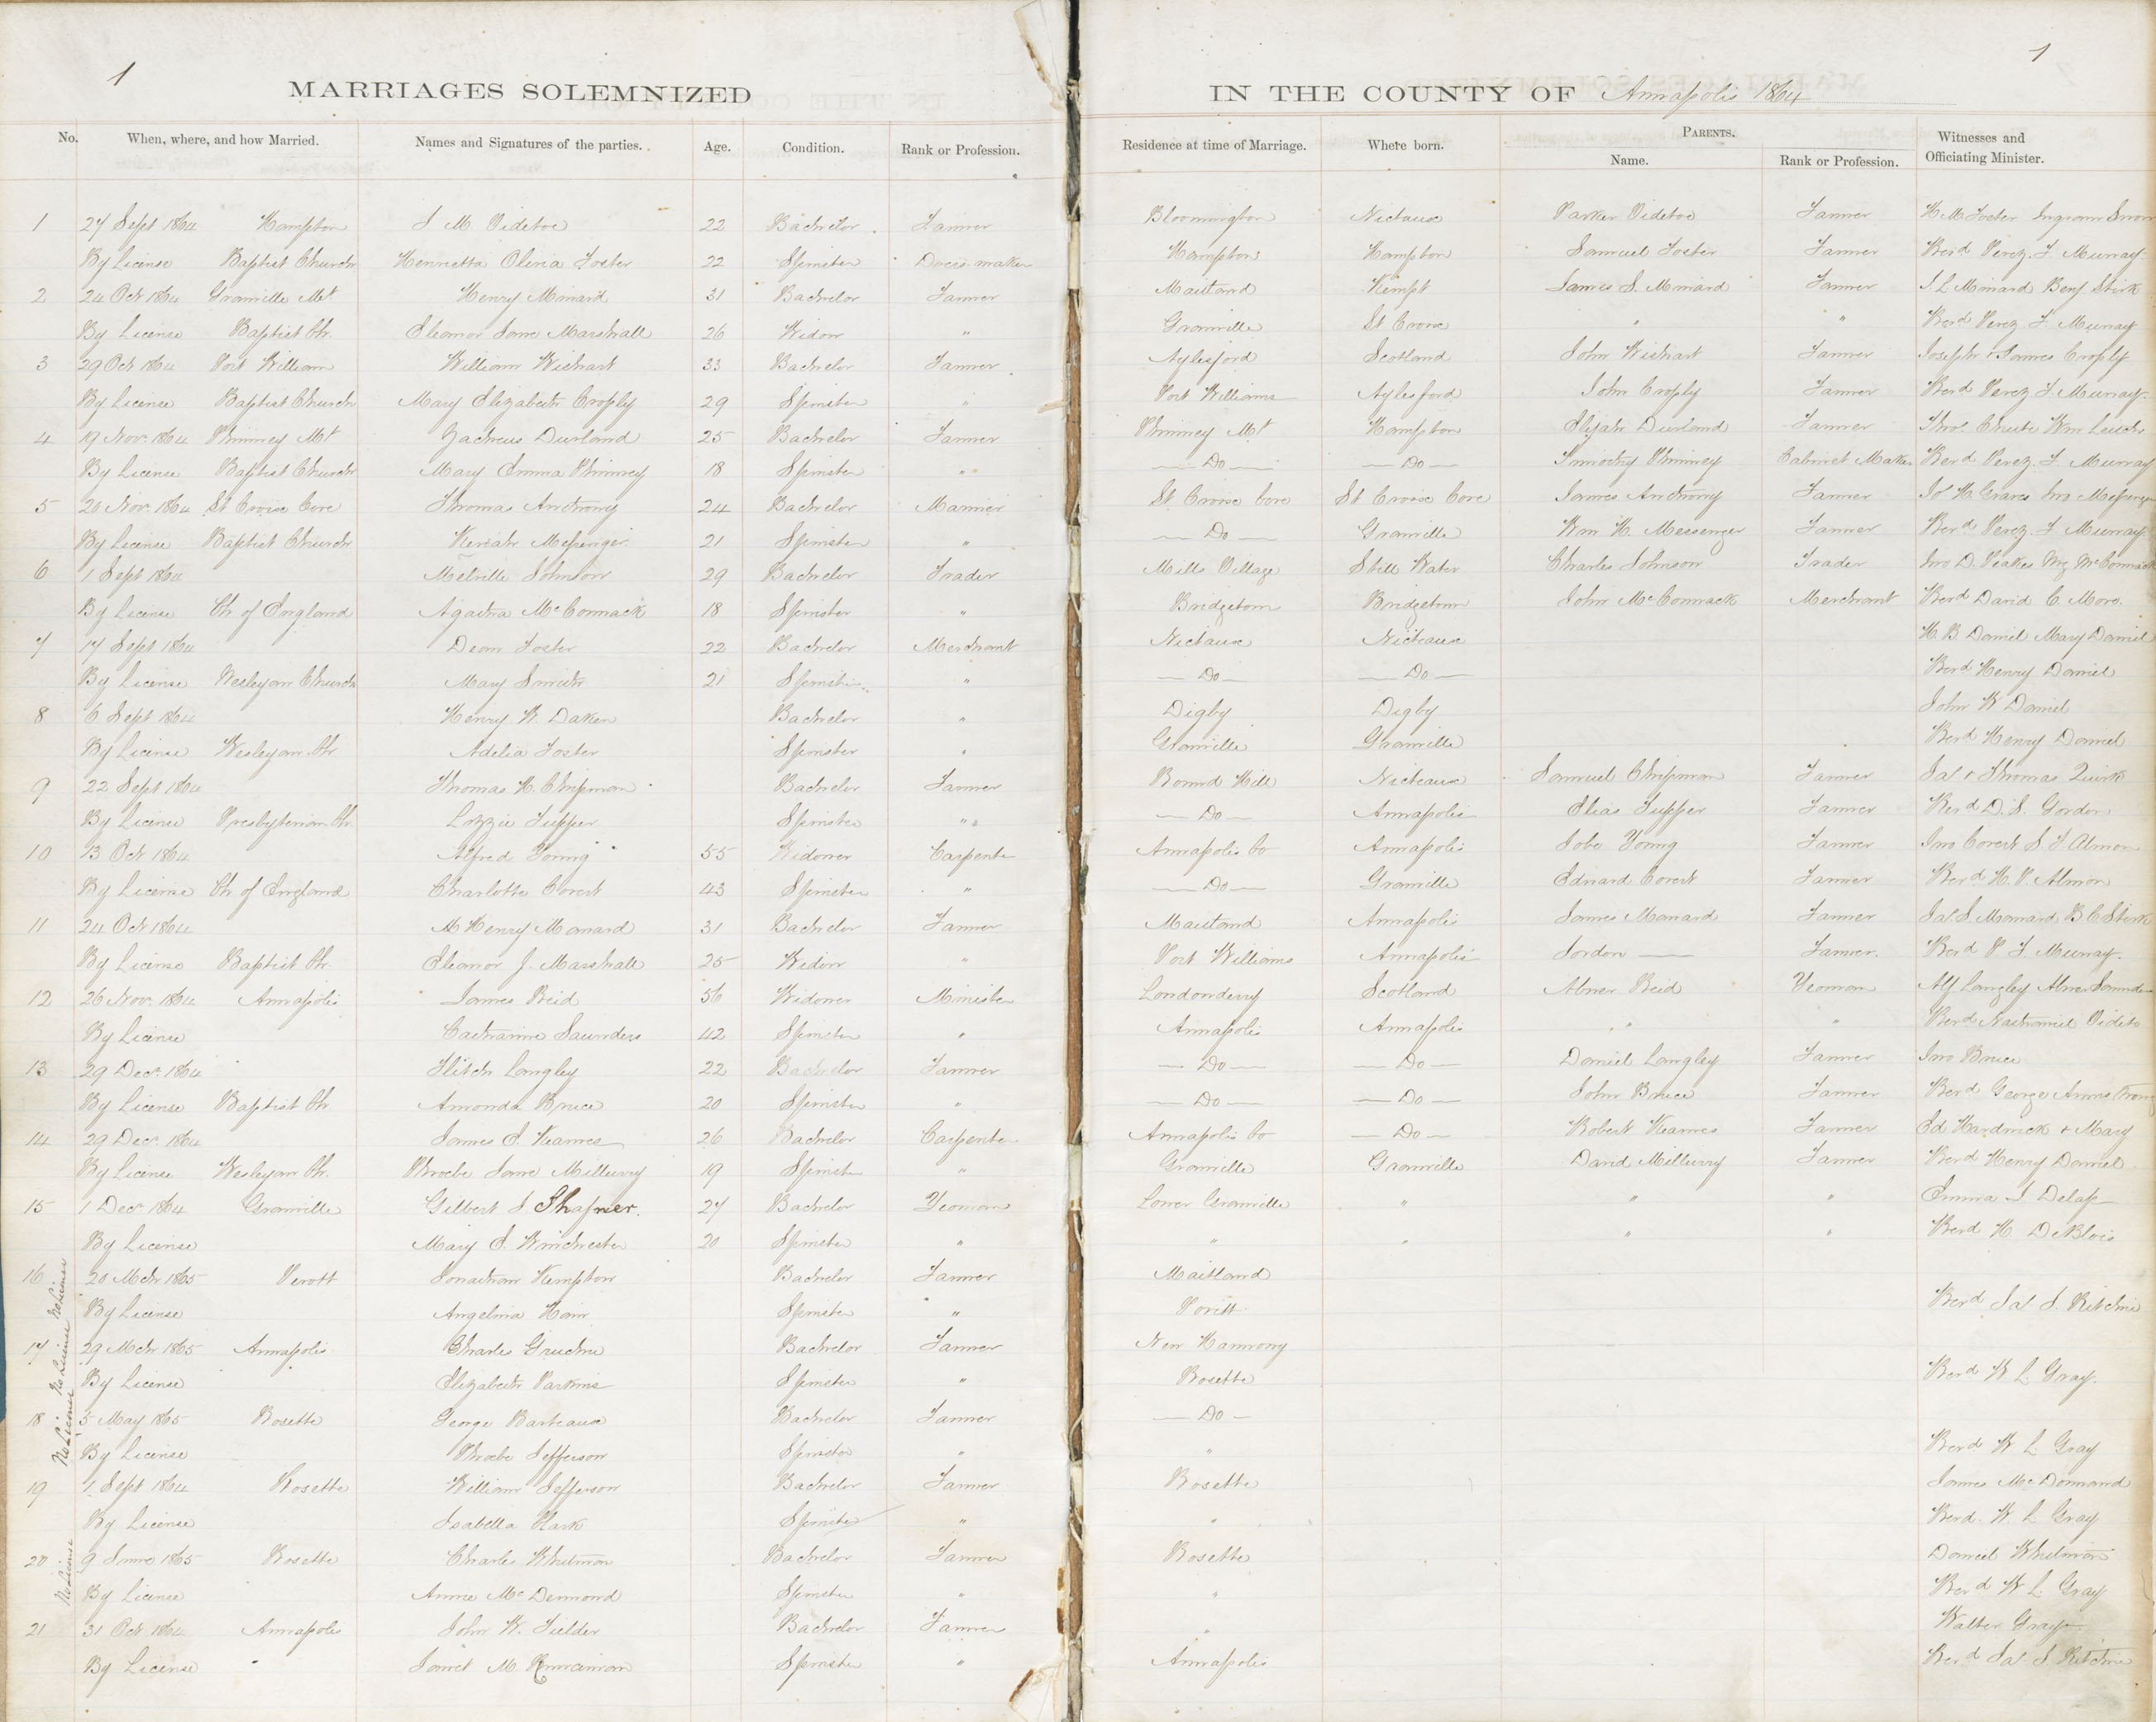 1
1
MARRIAGES SOLEMNIZED IN THE COUNTY OF Annapolis 1864
No. When, where, and how Married. Names and Signatures of the parties. Age. Condition. Rank or Profession. Residence at time of Marriage. Where born. PARENTS. Name. Rank or Profession. Witnesses and Officiating Minister.
1 27 Sept 1864 Hampton J M Videtoe 22 Bachelor Farmer Bloomington Nictaux Parker Videtoe Farmer H M Foster Ingram
By License Baptist Church Henrietta Olivia Foster 22 Spinster Dress maker Hampton Hampton Samuel Foster Farmer Revd Perez. F. Murray
2 24 Oct 1864 Granville Mt Henry Minard 31 Bachelor Farmer Maitland Kempt James S. Minard Farmer Minard Benj Stirk
By License Baptist Ch. Eleanor Jane Marshall 26 Widow " Granville St Croix " " Revd Perez F. Murray
3 29 Oct 1864 Port William William Wichart 33 Bachelor Farmer Aylesford Scotland John Wichart Farmer Joseph + James Croply
By License Baptist Church Mary Elizabeth Croply 29 Spinster " Port Williams Aylesford John Croply Farmer Revd Perez F Murray
4 19 Nov. 1864 Phinney Mt Zacheus Durland 25 Bachelor Farmer Phinney Mt Hampton Elijah Durland Farmer Thos. Chute Wm
By License Baptist Church Mary Emma Phinney 18 Spinster " Do Do Timothy Phinney Cabinet Maker Revd Perez. F. Murray
5 20 Nov. 1864 St Croix Cove Thomas Anthony 24 Bachelor Mariner St Croix Cove St Croix Cove James Anthony Farmer H. Graves Jno Messenger
By License Baptist Church Keziah Messenger 21 Spinster " Do Granville Wm H. Messenger Farmer Revd Perez. F Murray
6 1 Sept 1864 Melville Johnson 29 Bachelor Trader Mills Village Still Water Charles Johnson Trader Jno D. Peakes McCormack
By License Ch of England Agatha McCormack 18 Spinster " Bridgetown Bridgetown John McCormack Merchant Revd David C. More.
7 17 Sept 1864 Dean Foster 22 Bachelor Merchant Nictaux Nictaux H. B. Daniel Mary Daniel
By License Wesleyan Church Mary Smith 21 Spinster " Do Do Revd Henry Daniel
8 6 Sept 1864 Henry W. Daken Bachelor " Digby Digby John W Daniel
By License Wesleyan Ch Adelia Foster Spinster " Granville Granville Revd Henry Daniel
9 22 Sept 1864 Thomas H. Chipman Bachelor Farmer Round Hill Nictaux Samuel Chipman Farmer Jas + Thomas Quirk
By License Presbyterian Ch. Lozzie Tupper Spinster " Do Annapolis Elias Tupper Farmer Revd D. S. Gordon
10 13 Oct 1864 Alfred Young 55 Widower Carpenter Annapolis Co Annapolis Jobe Young Farmer Jno Covert S F Almon
By License Ch of England Charlotte Covert 43 Spinster " Do Granville Edward Covert Farmer Revd H. P. Almon
11 24 Oct 1864 M Henry Manard 31 Bachelor Farmer Maitland Annapolis James Manard Farmer Jas S. Manard B. C. Stirk
By License Baptist Ch. Eleanor J. Marshall 25 Widow " Port Williams Annapolis Jordon Farmer. Revd P F. Murray.
12 26 Nov. 1864 Annapolis James Reid 56 Widower Minister Londonderry Scotland Abner Reid Yeoman Alf Langley Abner Saunders
By License Catharine Saunders 42 Spinster " Annapolis Annapolis " " Revd Nathaniel Videto
13 29 Dec. 1864 Fletch Langley 22 Bachelor Farmer Do Do Daniel Langley Farmer Jno Bruce
By License Baptist Ch Amanda Bruce 20 Spinster " Do Do John Bruce Farmer Revd George Armstrong
14 29 Dec. 1864 James E. Kearnes 26 Bachelor Carpenter Annapolis Co Do Robert Kearnes Farmer Ed Hardwick + Mary
By License Wesleyan Ch. Phoebe Jane Millurry 19 Spinster " Granville Granville David Millurry Farmer Revd Henry Daniel
15 1 Dec. 1864 Granville Gilbert J Shafner. 27 Bachelor Yeoman Lower Granville " " " Emma J. Delap
By License Mary E. Winchester 20 Spinster " " " " " Revd H. DeBlois
16 20 Mch 1865 Perott Jonathan Kempton Bachelor Farmer Maitland
No License By License Angelina Ham Spinster " Perott Revd Jas. J. Ritchie
17 29 Mch 1865 Annapolis Charles Gruchie Bachelor Farmer New Harmony
No License By License Elizabeth Parkins Spinster " Rosette Revd W L. Gray.
18 5 May 1865 Rosette George Barteaux Bachelor Farmer Do
No License By License Phoebe Jefferson Spinster " " Revd W. L. Gray
19 1 Sept 1864 Rosette William Jefferson Bachelor Farmer Rosette James McDormand
By License Isabella Clark Spinster " " Revd. W. L. Gray
20 9 June 1865 Rosette Charles Whitman Bachelor Farmer Rosette Daniel Whitman
No License By License Annie McDermond Spinster " " Revd W L. Gray
21 31 Oct 1864 Annapolis John W. Fielder Bachelor Farmer " Walter Gray
By License Janet M. Spinster " Annapolis Revd Jas J. Ritchie